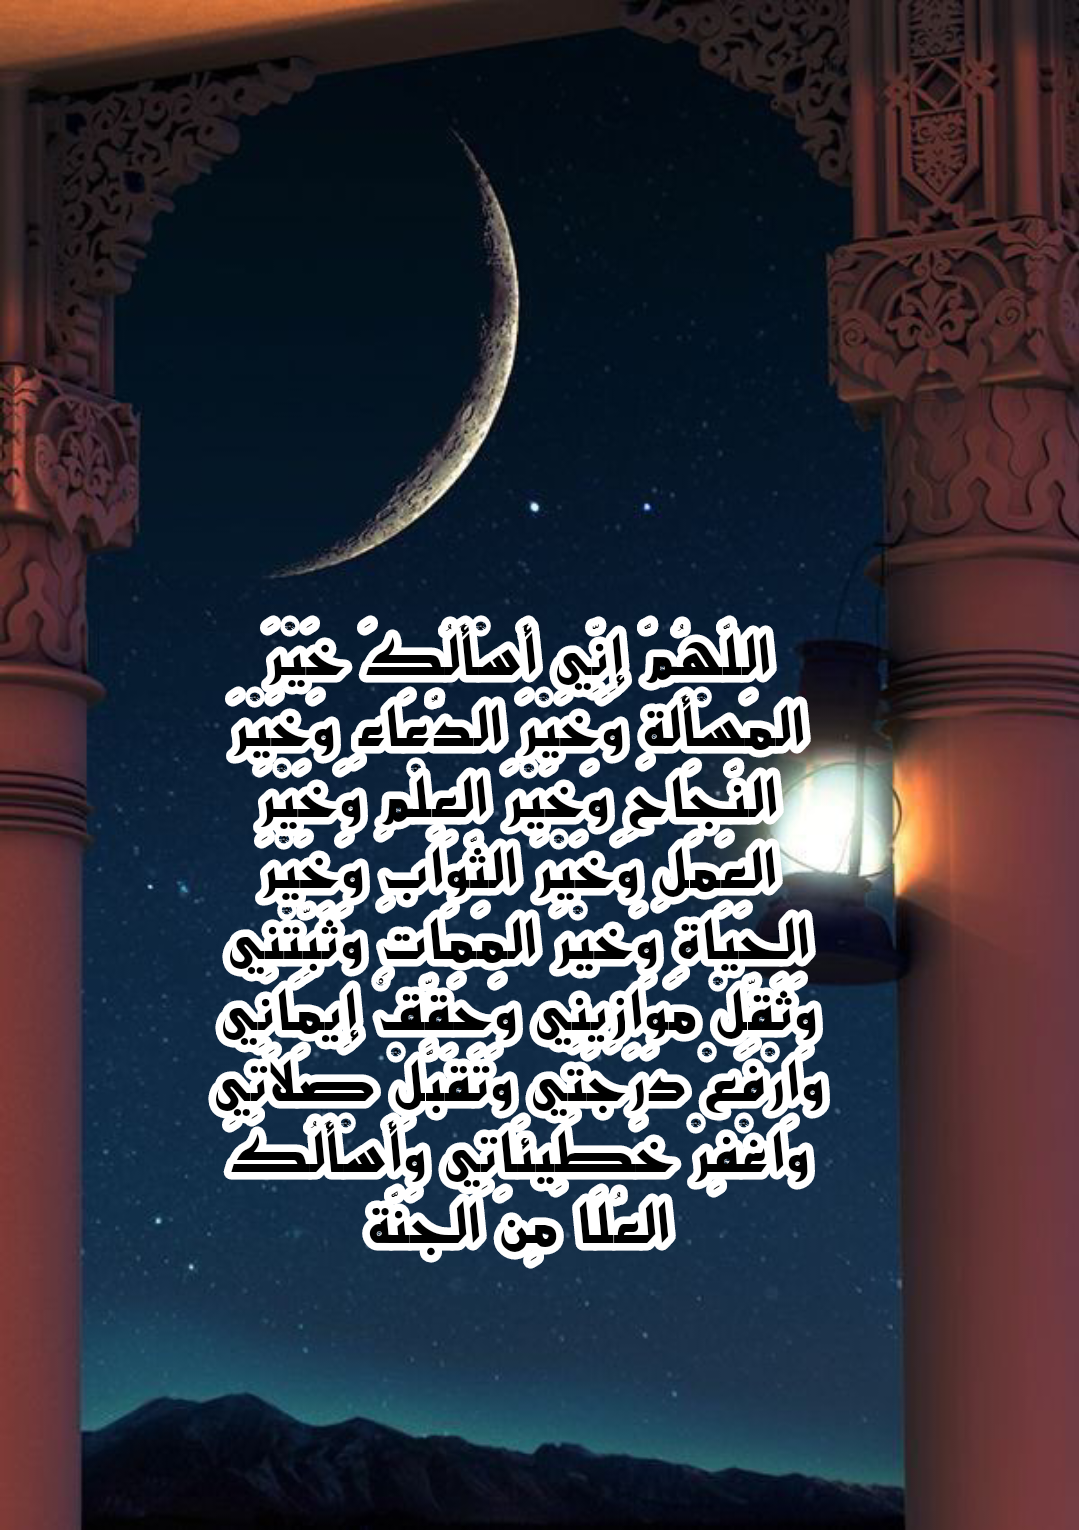 اللَهُمَّ إِنِّي أَسْأَلُكَ خَيْرَ
المَسْأَلَةِ وَخَيْرَ الدُّعَاءِ وَخَيْرَ
النَّجَاحِ وَخَيْرَ العِلْمِ وَخَيْرَ
العَمَلِ وَخَيْرَ الثَّوَابِ وَخَيْرَ
الحَيَاةِ وَخَيْرَ المَمَاتِ وَثَبِّتْنِي
وَثَقِّلْ مَوَازِينِي وَحَقِّقْ إِيمَانِي
وَارْفَعْ دَرَجَتِي وَتَقَبَّلْ صَلَاتِي
وَاغْفِرْ خَطِيئَاتِي وَأَسْأَلُكَ
العُلَا مِنَ الجَنَّة